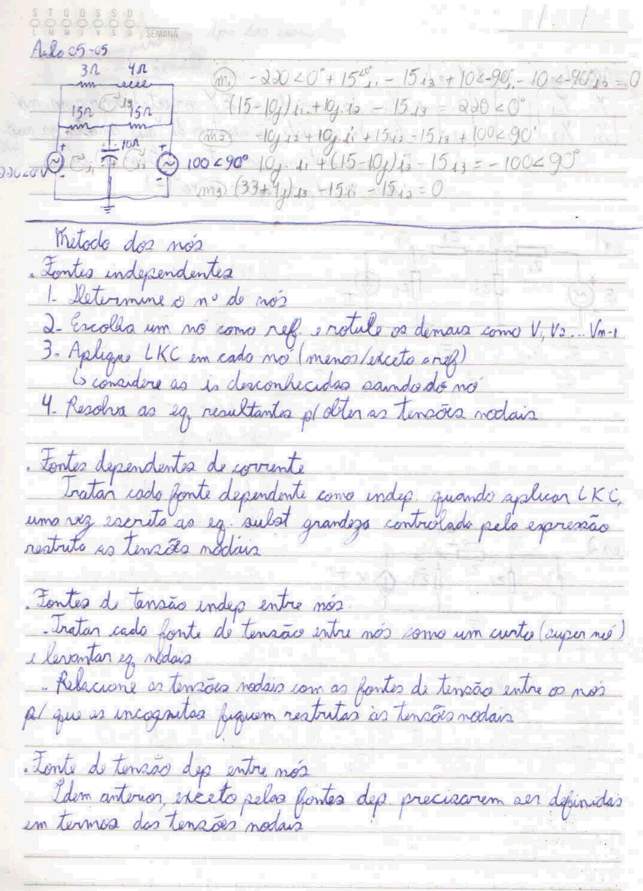 S T Q Q S S D
SEMANA
Aula 05-05
3Ω 4Ω
15Ω i3 15Ω
10Ω
220<0V i1 i2 100<90°
m1 -220<0° + 15<0° i1 - 15 i3 + 10<-90 i1 - 10<-90 i2 = 0
(15-10j) i1 + 10j i2 - 15 i3 = 220<0°
m2 -10j i2 + 10j i1 + 15 i2 - 15 i3 + 100<90°
10j i1 + (15-10j) i2 - 15 i3 = -100<90°
m3 (33+4j) i3 - 15 i1 - 15 i2 = 0
Método dos nós
. Fontes independentes
1- Determine o nº de nós
2- Escolha um nó como ref. e rotule os demais como V1 V2 ... Vn-1
3- Aplique LKC em cada nó (menos/exceto a ref)
↳ considere as is desconhecidas saindo do nó
4- Resolva as eq resultantes p/ obter as tensões nodais
. Fontes dependentes de corrente
Tratar cada fonte dependente como indep. quando aplicar LKC,
uma vez escrita as eq. subst grandeza controlada pela expressão
restrita as tensões nodais
. Fontes de tensão indep entre nós
- Tratar cada fonte de tensão entre nós como um curto (super nó)
e levantar eq nodais
- Relacione as tensões nodais com as fontes de tensão entre os nós
p/ que as incognitas fiquem restritas às tensões nodais
. Fonte de tensão dep entre nós
Idem anterior, exceto pelas fontes dep. precisarem ser definidas
em termos das tensões nodais